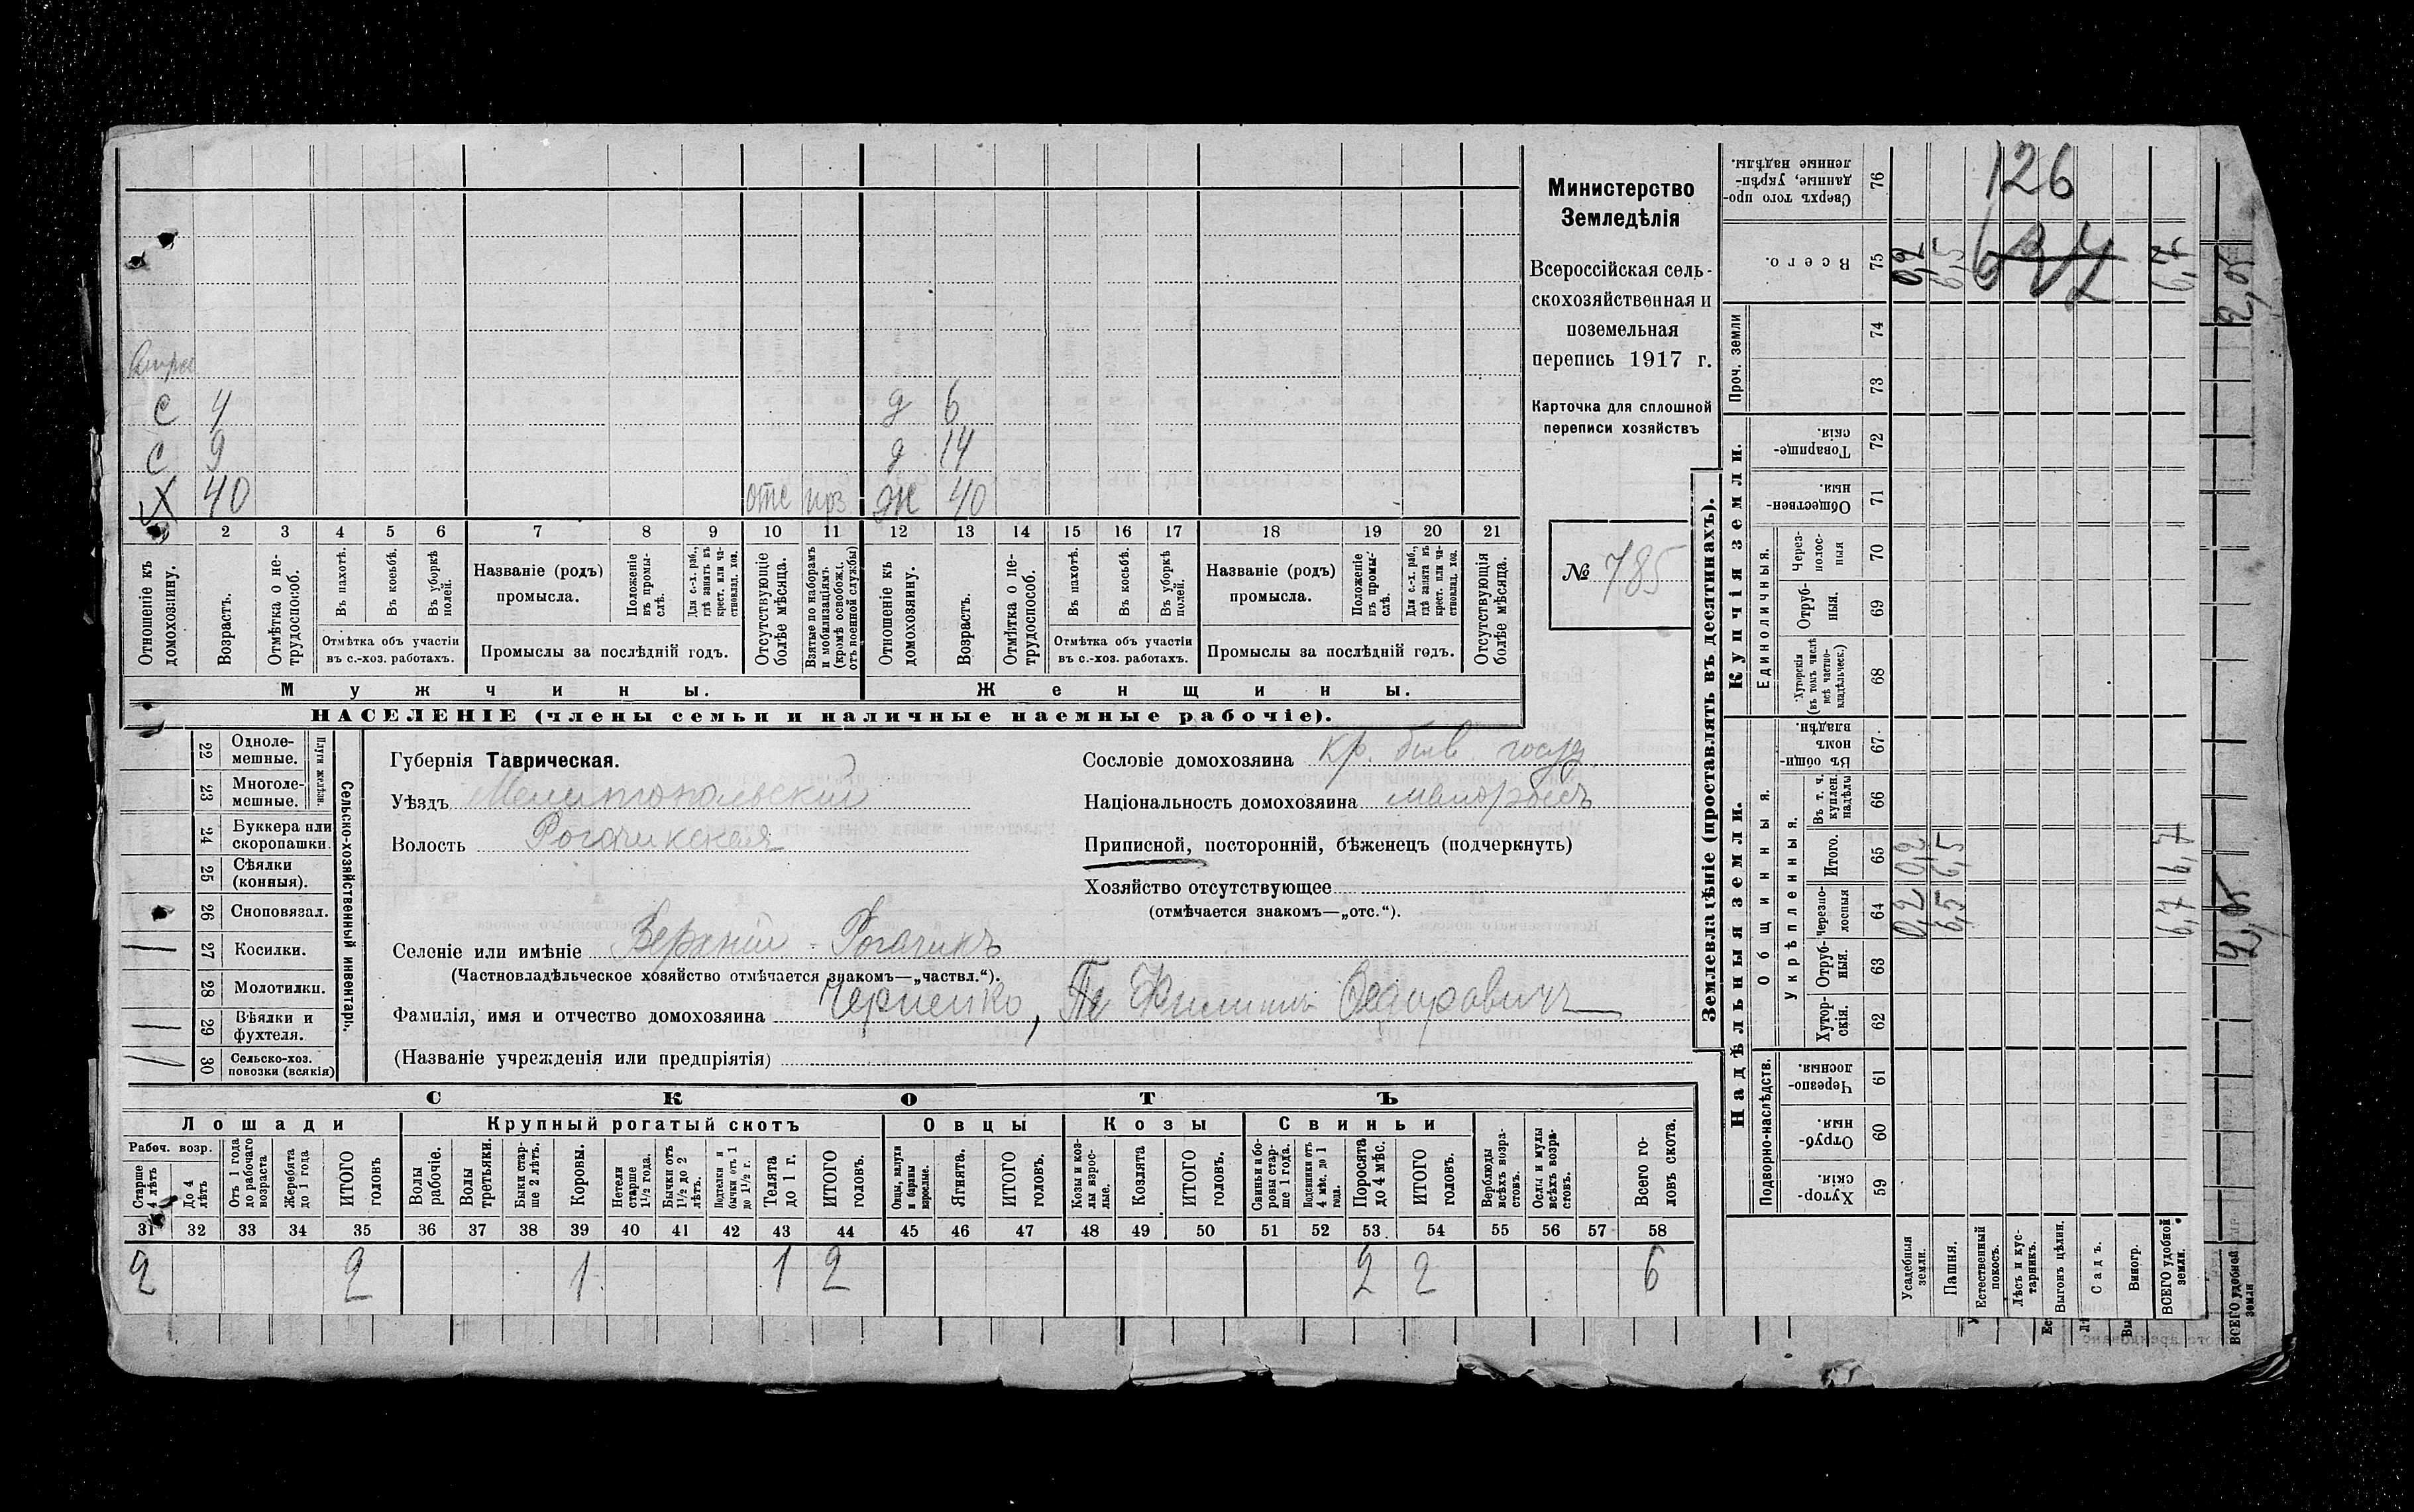 Министерство
Земледѣлія
Всероссійская сель-
скохозяйственная и
поземельная
перепись 1917 г.
Карточка для сплошной
переписи хозяйствъ
№ 785
с 4 д 6
с 9 д 14
Х 40 отс ж 40
1 2 3 4 5 6 7 8 9 10 11 12 13 14 15 16 17 18 19 20 21
Отношеніе къ домохозяину.
Возрастъ.
Отмѣтка о не-трудоспособ.
Въ пахотѣ.
Въ косьбѣ.
Въ уборкѣ полей.
Отмѣтка объ участіи
въ с.-хоз. работахъ.
Названіе (родъ)
промысла.
Положеніе въ промы-слѣ.
Для с.-х. раб., гдѣ занятъ въ крест. или ча-стновлад. хоз.
Промыслы за послѣдній годъ.
Отсутствующіе болѣе мѣсяца.
Взятые по наборамъ и мобилизаціямъ (кромѣ освобожд. отъ военной службы)
Отношеніе къ домохозяину.
Возрастъ.
Отмѣтка о не-трудоспособ.
Въ пахотѣ.
Въ косьбѣ.
Въ уборкѣ полей.
Отмѣтка объ участіи
въ с.-хоз. работахъ.
Названіе (родъ)
промысла.
Положеніе въ промы-слѣ.
Для с.-х. раб., гдѣ занята въ крест. или ча-стновлад. хоз.
Промыслы за послѣдній годъ.
Отсутствующія болѣе мѣсяца.
Мужчины.
Женщины.
НАСЕЛЕНІЕ (члены семьи и наличные наемные рабочіе).
Сельско-хозяйственный инвентарь.
Плуги желѣзн.
22 Одноле-мешные.
23 Многоле-мешные.
24 Буккера или скоропашки.
25 Сѣялки (конныя).
26 Сноповязал.
27 Косилки.
28 Молотилки.
29 Вѣялки и фухтеля.
30 Сельско-хоз. повозки (всякія)
Губернія Таврическая.
Уѣздъ Мелитопольский
Волость Рогачикская
Сословіе домохозяина кр. быв. госуд.
Національность домохозяина малороссъ
Приписной, посторонній, бѣженецъ (подчеркнуть)
Хозяйство отсутствующее
(отмѣчается знакомъ—„отс.“).
Селеніе или имѣніе Верхній Рогачикъ
(Частновладѣльческое хозяйство отмѣчается знакомъ—„частвл.“).
Фамилія, имя и отчество домохозяина Черненко, Филиппъ Федоровичъ
(Названіе учрежденія или предпріятія)
СКОТЪ
Лошади Крупный рогатый скотъ Овцы Козы Свиньи
Рабоч. возр.
Старше 4 лѣтъ
До 4 лѣтъ
Отъ 1 года до рабочаго возраста
Жеребята до 1 года
ИТОГО головъ
Волы рабочіе.
Волы третьяки.
Быки стар-ше 2 лѣтъ.
Коровы.
Нетели старше 1½ года.
Бычки отъ 1½ до 2 лѣтъ.
Подтелки и бычки отъ 1 до 1½ г.
Телята до 1 г.
ИТОГО головъ.
Овцы, валухи и бараны взрослые.
Ягнята.
ИТОГО головъ.
Козы и коз-лы взрос-лые.
Козлята
ИТОГО головъ.
Свиньи и бо-ровы стар-ше 1 года.
Подсвинки отъ 4 мѣс. до 1 года.
Поросята до 4 мѣс.
ИТОГО головъ.
Верблюды всѣхъ возра-стовъ.
Ослы и мулы всѣхъ возра-стовъ.
Всего го-ловъ скота.
31 32 33 34 35 36 37 38 39 40 41 42 43 44 45 46 47 48 49 50 51 52 53 54 55 56 57 58
2 2 1 1 2 2 2 6
Землевладѣніе (проставлять въ десятинахъ).
Надѣльныя земли.
Купчія земли.
Проч. земли
Подворно-наслѣдств.
Общинныя.
Укрѣпленныя.
Единоличныя.
Хутор-скія. 59
Отруб-ныя. 60
Черезпо-лосныя 61
Хутор-скія. 62
Отруб-ныя. 63
Черезпо-лосныя 64
Итого. 65
Въ т. ч. куплен. надѣлы 66
Въ общи-номъ владѣн. 67
Хуторскія (въ томъ числѣ всѣ частно-владѣльческ.) 68
Отруб-ныя. 69
Через-полос-ныя 70
Обществен-ныя. 71
Товарище-скія. 72
73
74
Всего. 75
Сверхъ того про-данные, укрѣп-ленные надѣлы. 76
Усадебныя земли. 0,2 0,2 0,2
Пашня. 6,5 6,5 6,5
Естественный покосъ.
Лѣсъ и кус-тарникъ.
Выгонъ цѣлин.
Садъ.
Виногр.
ВСЕГО удобной земли. 6,7 6,7 6,7
126
ВСЕГО удобной земли
2,05
2,05